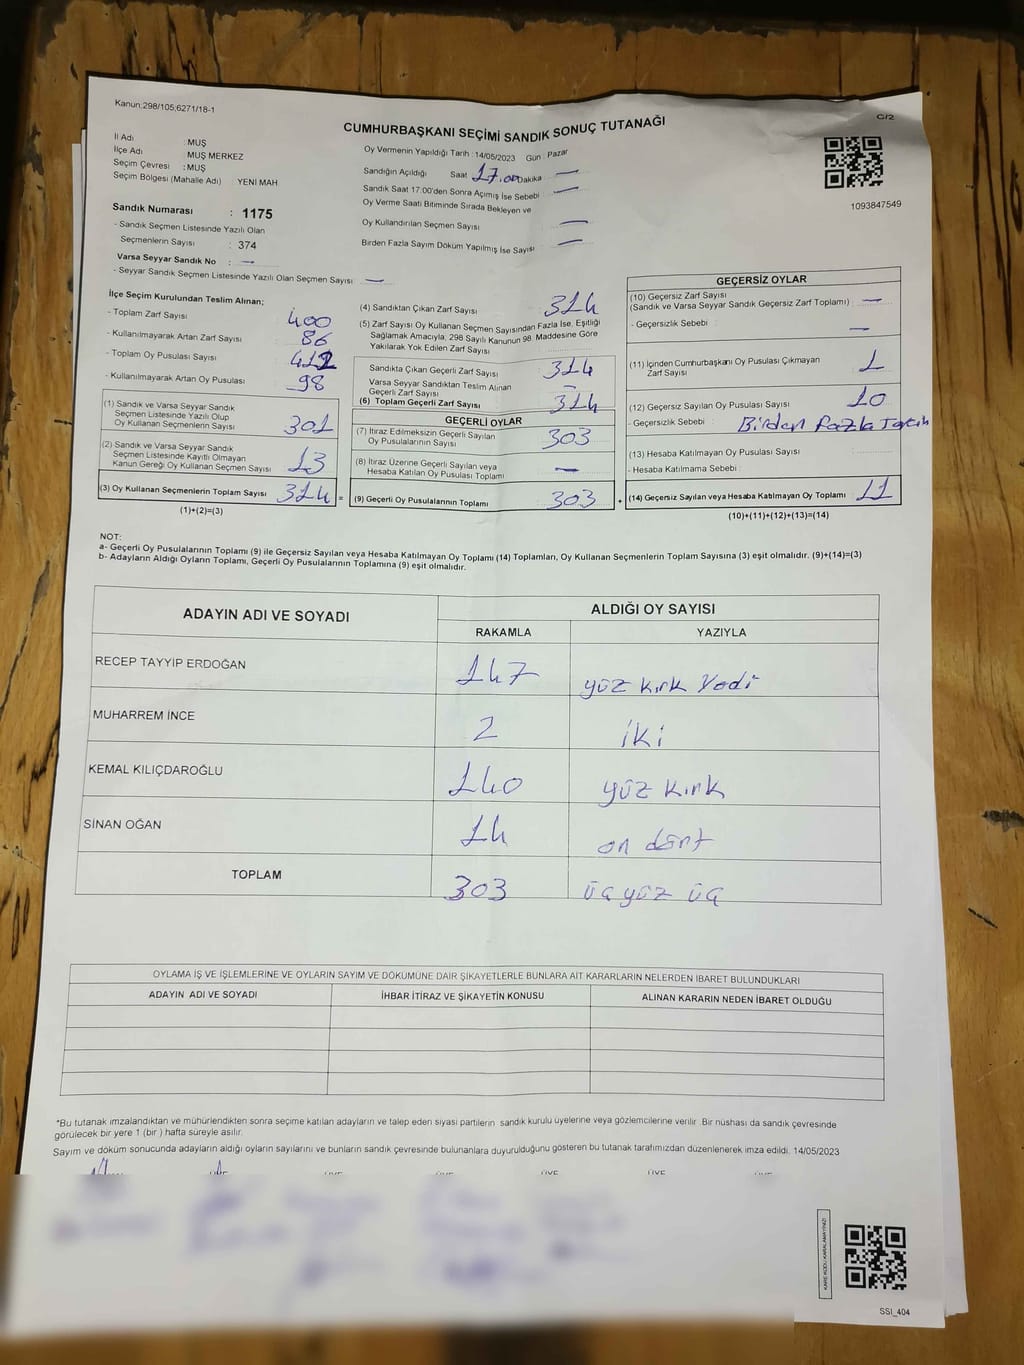 Kanun;298/105;6271/18-1
C/2
CUMHURBAŞKANI SEÇİMİ SANDIK SONUÇ TUTANAĞI
İl Adı : MUŞ
İlçe Adı : MUŞ MERKEZ
Seçim Çevresi : MUŞ
Seçim Bölgesi (Mahalle Adı) : YENİ MAH
Sandık Numarası : 1175
- Sandık Seçmen Listesinde Yazılı Olan
Seçmenlerin Sayısı : 374
Varsa Seyyar Sandık No : —
- Seyyar Sandık Seçmen Listesinde Yazılı Olan Seçmen Sayısı : —
Oy Vermenin Yapıldığı Tarih : 14/05/2023 Gün : Pazar
Sandığın Açıldığı Saat 17.00 Dakika —
Sandık Saat 17:00'den Sonra Açımış İse Sebebi —
Oy Verme Saati Bitiminde Sırada Bekleyen ve
Oy Kullandırılan Seçmen Sayısı —
Birden Fazla Sayım Döküm Yapılmış İse Sayısı —
1093847549
İlçe Seçim Kurulundan Teslim Alınan;
- Toplam Zarf Sayısı : 400
- Kullanılmayarak Artan Zarf Sayısı : 86
- Toplam Oy Pusulası Sayısı : 412
- Kullanılmayarak Artan Oy Pusulası : 98
(1) Sandık ve Varsa Seyyar Sandık
Seçmen Listesinde Yazılı Olup
Oy Kullanan Seçmenlerin Sayısı : 301
(2) Sandık ve Varsa Seyyar Sandık
Seçmen Listesinde Kayıtlı Olmayan
Kanun Gereği Oy Kullanan Seçmen Sayısı : 13
(3) Oy Kullanan Seçmenlerin Toplam Sayısı : 314 =
(1)+(2)=(3)
(4) Sandıktan Çıkan Zarf Sayısı : 314
(5) Zarf Sayısı Oy Kullanan Seçmen Sayısından Fazla İse, Eşitliği
Sağlamak Amacıyla; 298 Sayılı Kanunun 98. Maddesine Göre
Yakılarak Yok Edilen Zarf Sayısı :
Sandıkta Çıkan Geçerli Zarf Sayısı : 314
Varsa Seyyar Sandıktan Teslim Alınan
Geçerli Zarf Sayısı : —
(6) Toplam Geçerli Zarf Sayısı : 314
GEÇERLİ OYLAR
(7) İtiraz Edilmeksizin Geçerli Sayılan
Oy Pusulalarının Sayısı : 303
(8) İtiraz Üzerine Geçerli Sayılan veya
Hesaba Katılan Oy Pusulası Toplamı : —
(9) Geçerli Oy Pusulalarının Toplamı : 303 +
GEÇERSİZ OYLAR
(10) Geçersiz Zarf Sayısı
(Sandık ve Varsa Seyyar Sandık Geçersiz Zarf Toplamı) : —
- Geçersizlik Sebebi : —
(11) İçinden Cumhurbaşkanı Oy Pusulası Çıkmayan
Zarf Sayısı : 1
(12) Geçersiz Sayılan Oy Pusulası Sayısı : 10
- Geçersizlik Sebebi : Birden fazla Tercih
(13) Hesaba Katılmayan Oy Pusulası Sayısı :
- Hesaba Katılmama Sebebi :
(14) Geçersiz Sayılan veya Hesaba Katılmayan Oy Toplamı : 11
(10)+(11)+(12)+(13)=(14)
NOT:
a- Geçerli Oy Pusulalarının Toplamı (9) ile Geçersiz Sayılan veya Hesaba Katılmayan Oy Toplamı (14) Toplamları, Oy Kullanan Seçmenlerin Toplam Sayısına (3) eşit olmalıdır. (9)+(14)=(3)
b- Adayların Aldığı Oyların Toplamı, Geçerli Oy Pusulalarının Toplamına (9) eşit olmalıdır.
ADAYIN ADI VE SOYADI ALDIĞI OY SAYISI
RAKAMLA YAZIYLA
RECEP TAYYİP ERDOĞAN 147 yüz kırk Yedi
MUHARREM İNCE 2 iki
KEMAL KILIÇDAROĞLU 140 yüz kırk
SİNAN OĞAN 14 on dört
TOPLAM 303 üçyüz üç
OYLAMA İŞ VE İŞLEMLERİNE VE OYLARIN SAYIM VE DÖKÜMÜNE DAİR ŞİKAYETLERLE BUNLARA AİT KARARLARIN NELERDEN İBARET BULUNDUKLARI
ADAYIN ADI VE SOYADI İHBAR İTİRAZ VE ŞİKAYETİN KONUSU ALINAN KARARIN NEDEN İBARET OLDUĞU
*Bu tutanak imzalandıktan ve mühürlendikten sonra seçime katılan adayların ve talep eden siyasi partilerin sandık kurulu üyelerine veya gözlemcilerine verilir. Bir nüshası da sandık çevresinde
görülecek bir yere 1 (bir ) hafta süreyle asılır.
Sayım ve döküm sonucunda adayların aldığı oyların sayılarını ve bunların sandık çevresinde bulunanlara duyurulduğunu gösteren bu tutanak tarafımızdan düzenlenerek imza edildi. 14/05/2023
ÜYE ÜYE ÜYE ÜYE
KARE KODU KARALAMAYINIZ!
SSI_404